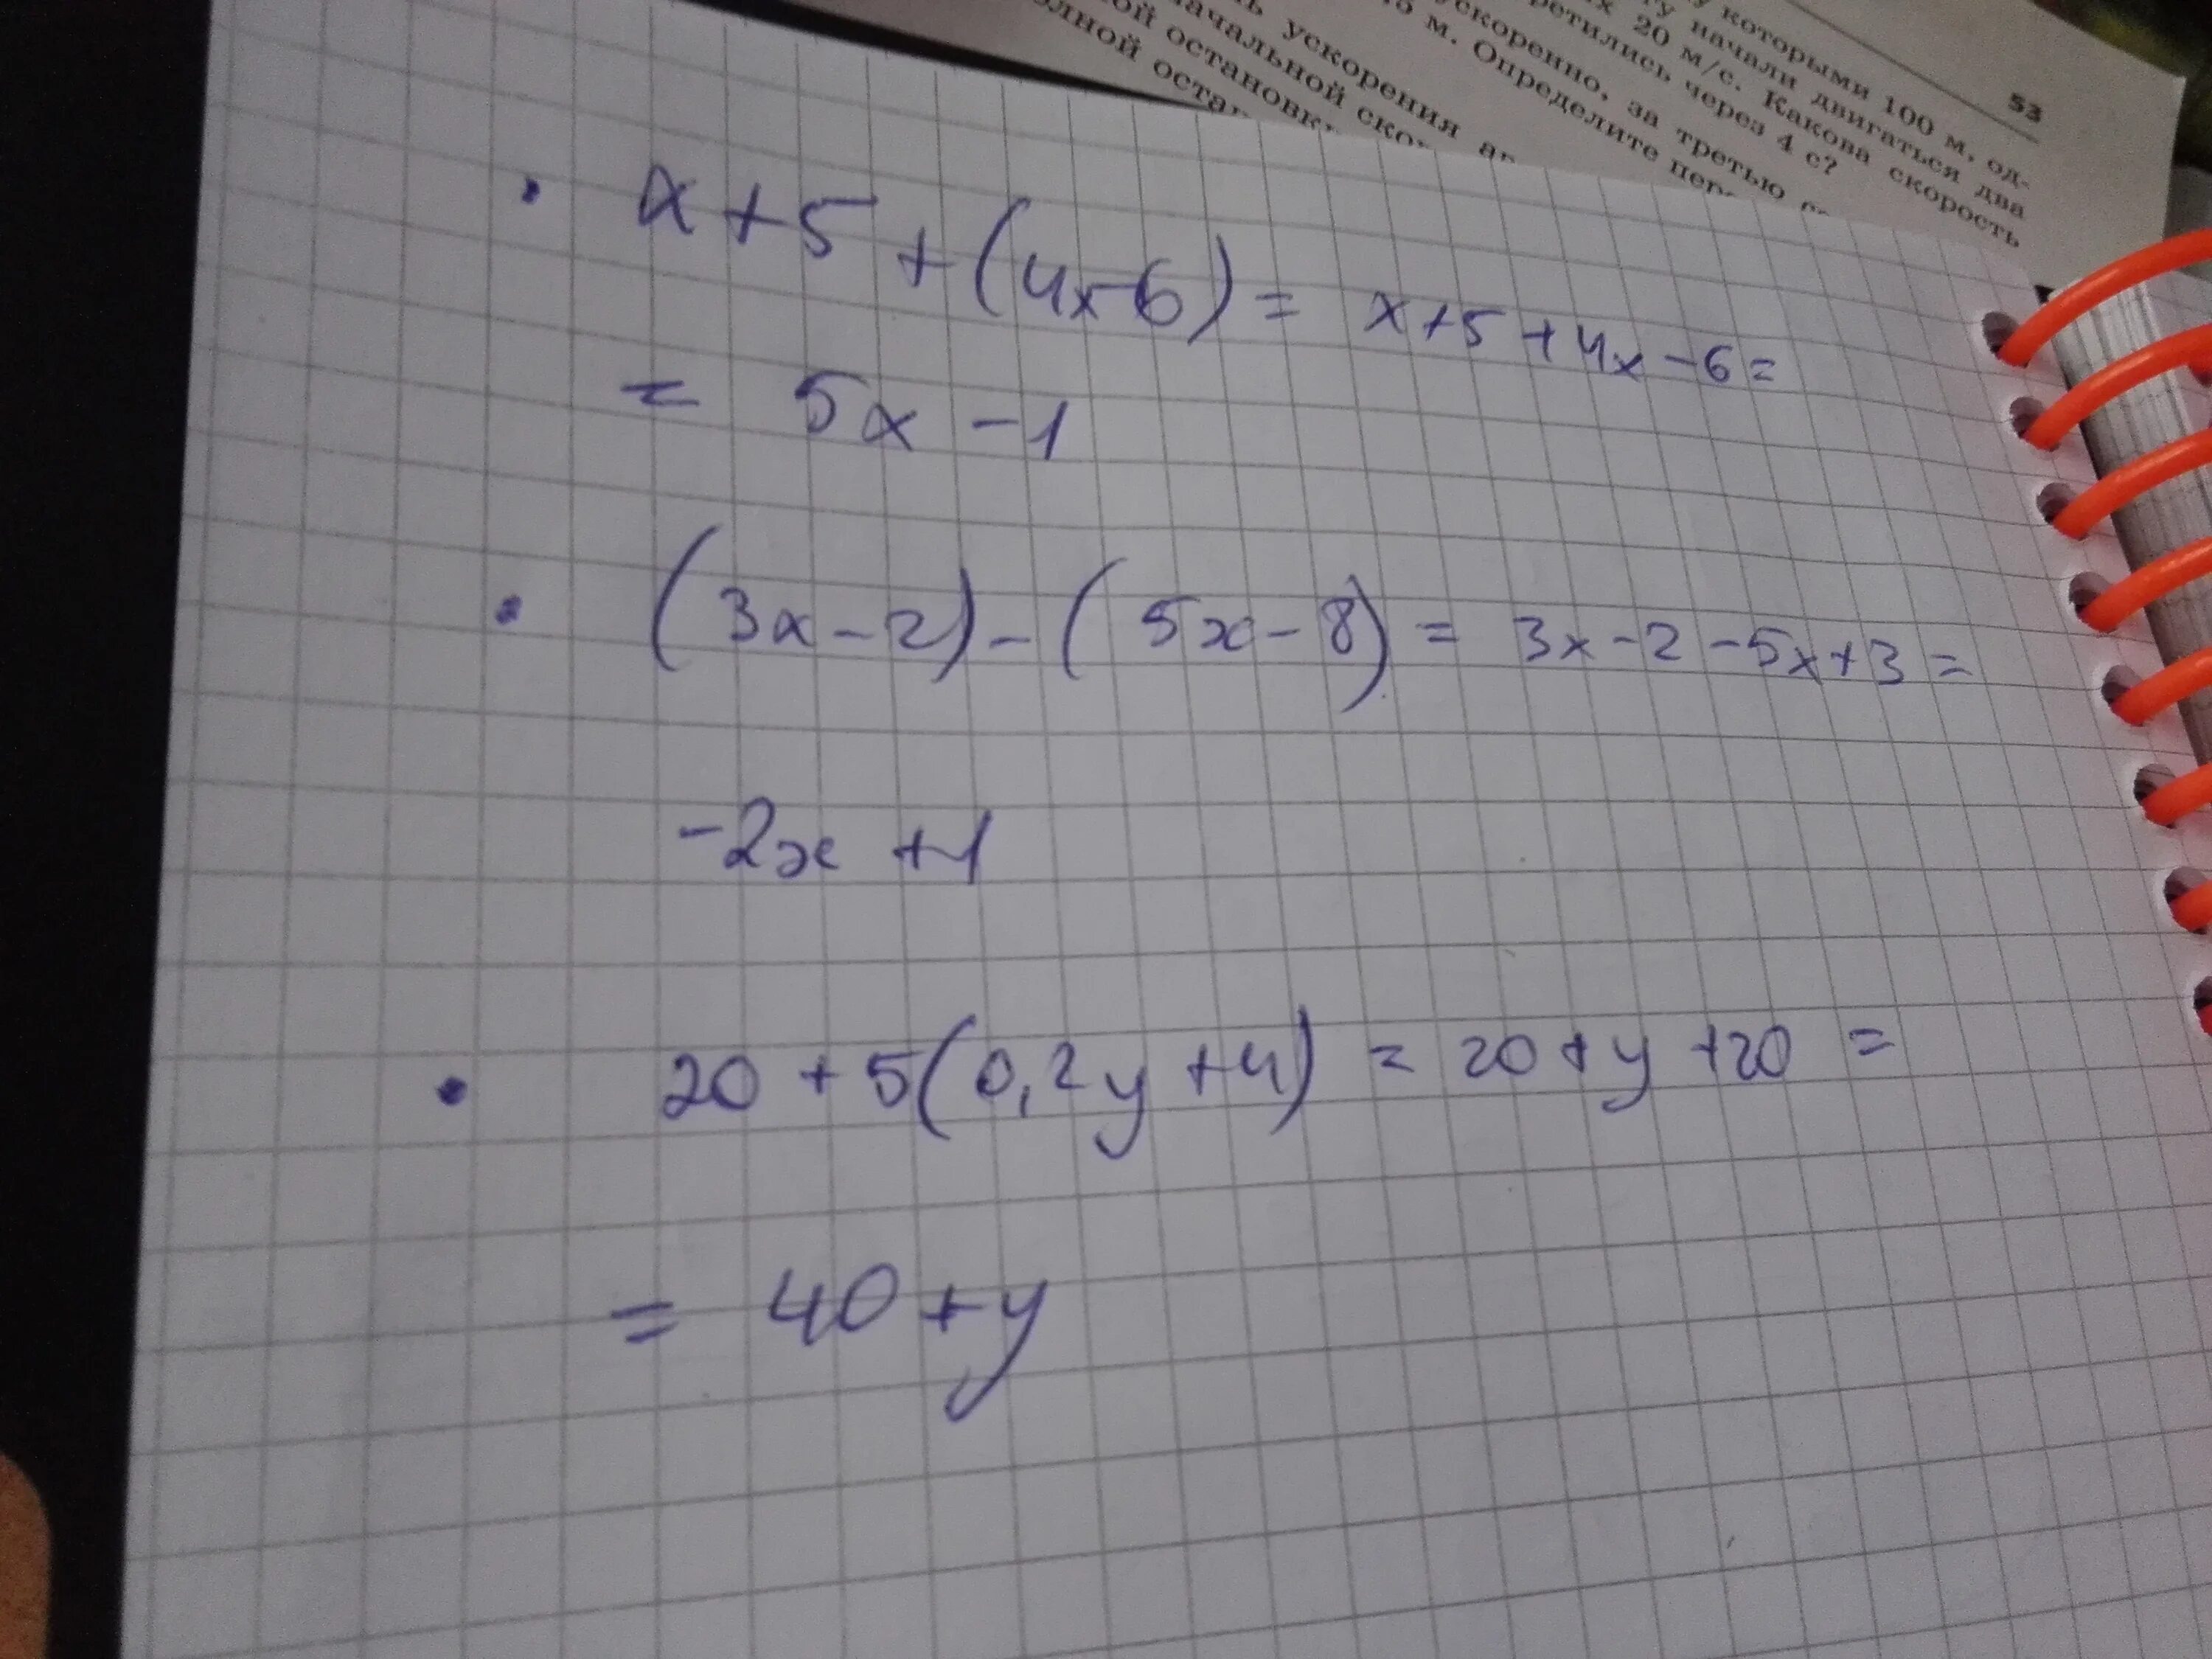 53
которыми 100 м, од-
ту начали двигаться два
20 м/с. Какова скорость
ретились через 4 с?
ускоренно, за третью
м. Определите
ускорения
начальной
остановки
x+5+(4x-6)= x+5+4x-6=
= 5x-1
(3x-2)-(5x-8)= 3x-2-5x+3=
-2x+1
20+5(0,2y+4) = 20+y+20 =
= 40+y